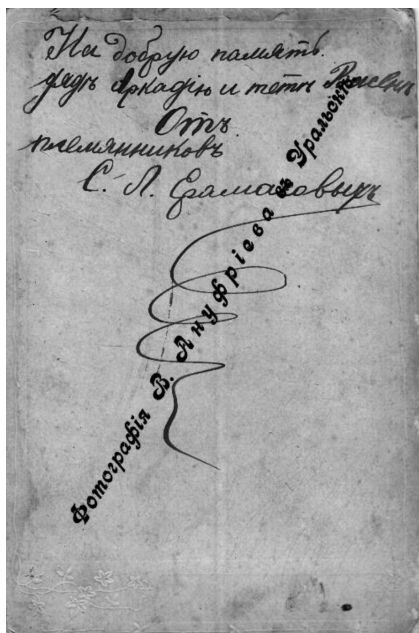 На добрую память.
дядѣ Аркадію и тетѣ
Отъ
племянниковъ
С. Л. Ермаковыхъ
Фотографія В. Ануфріева въ Уральскѣ